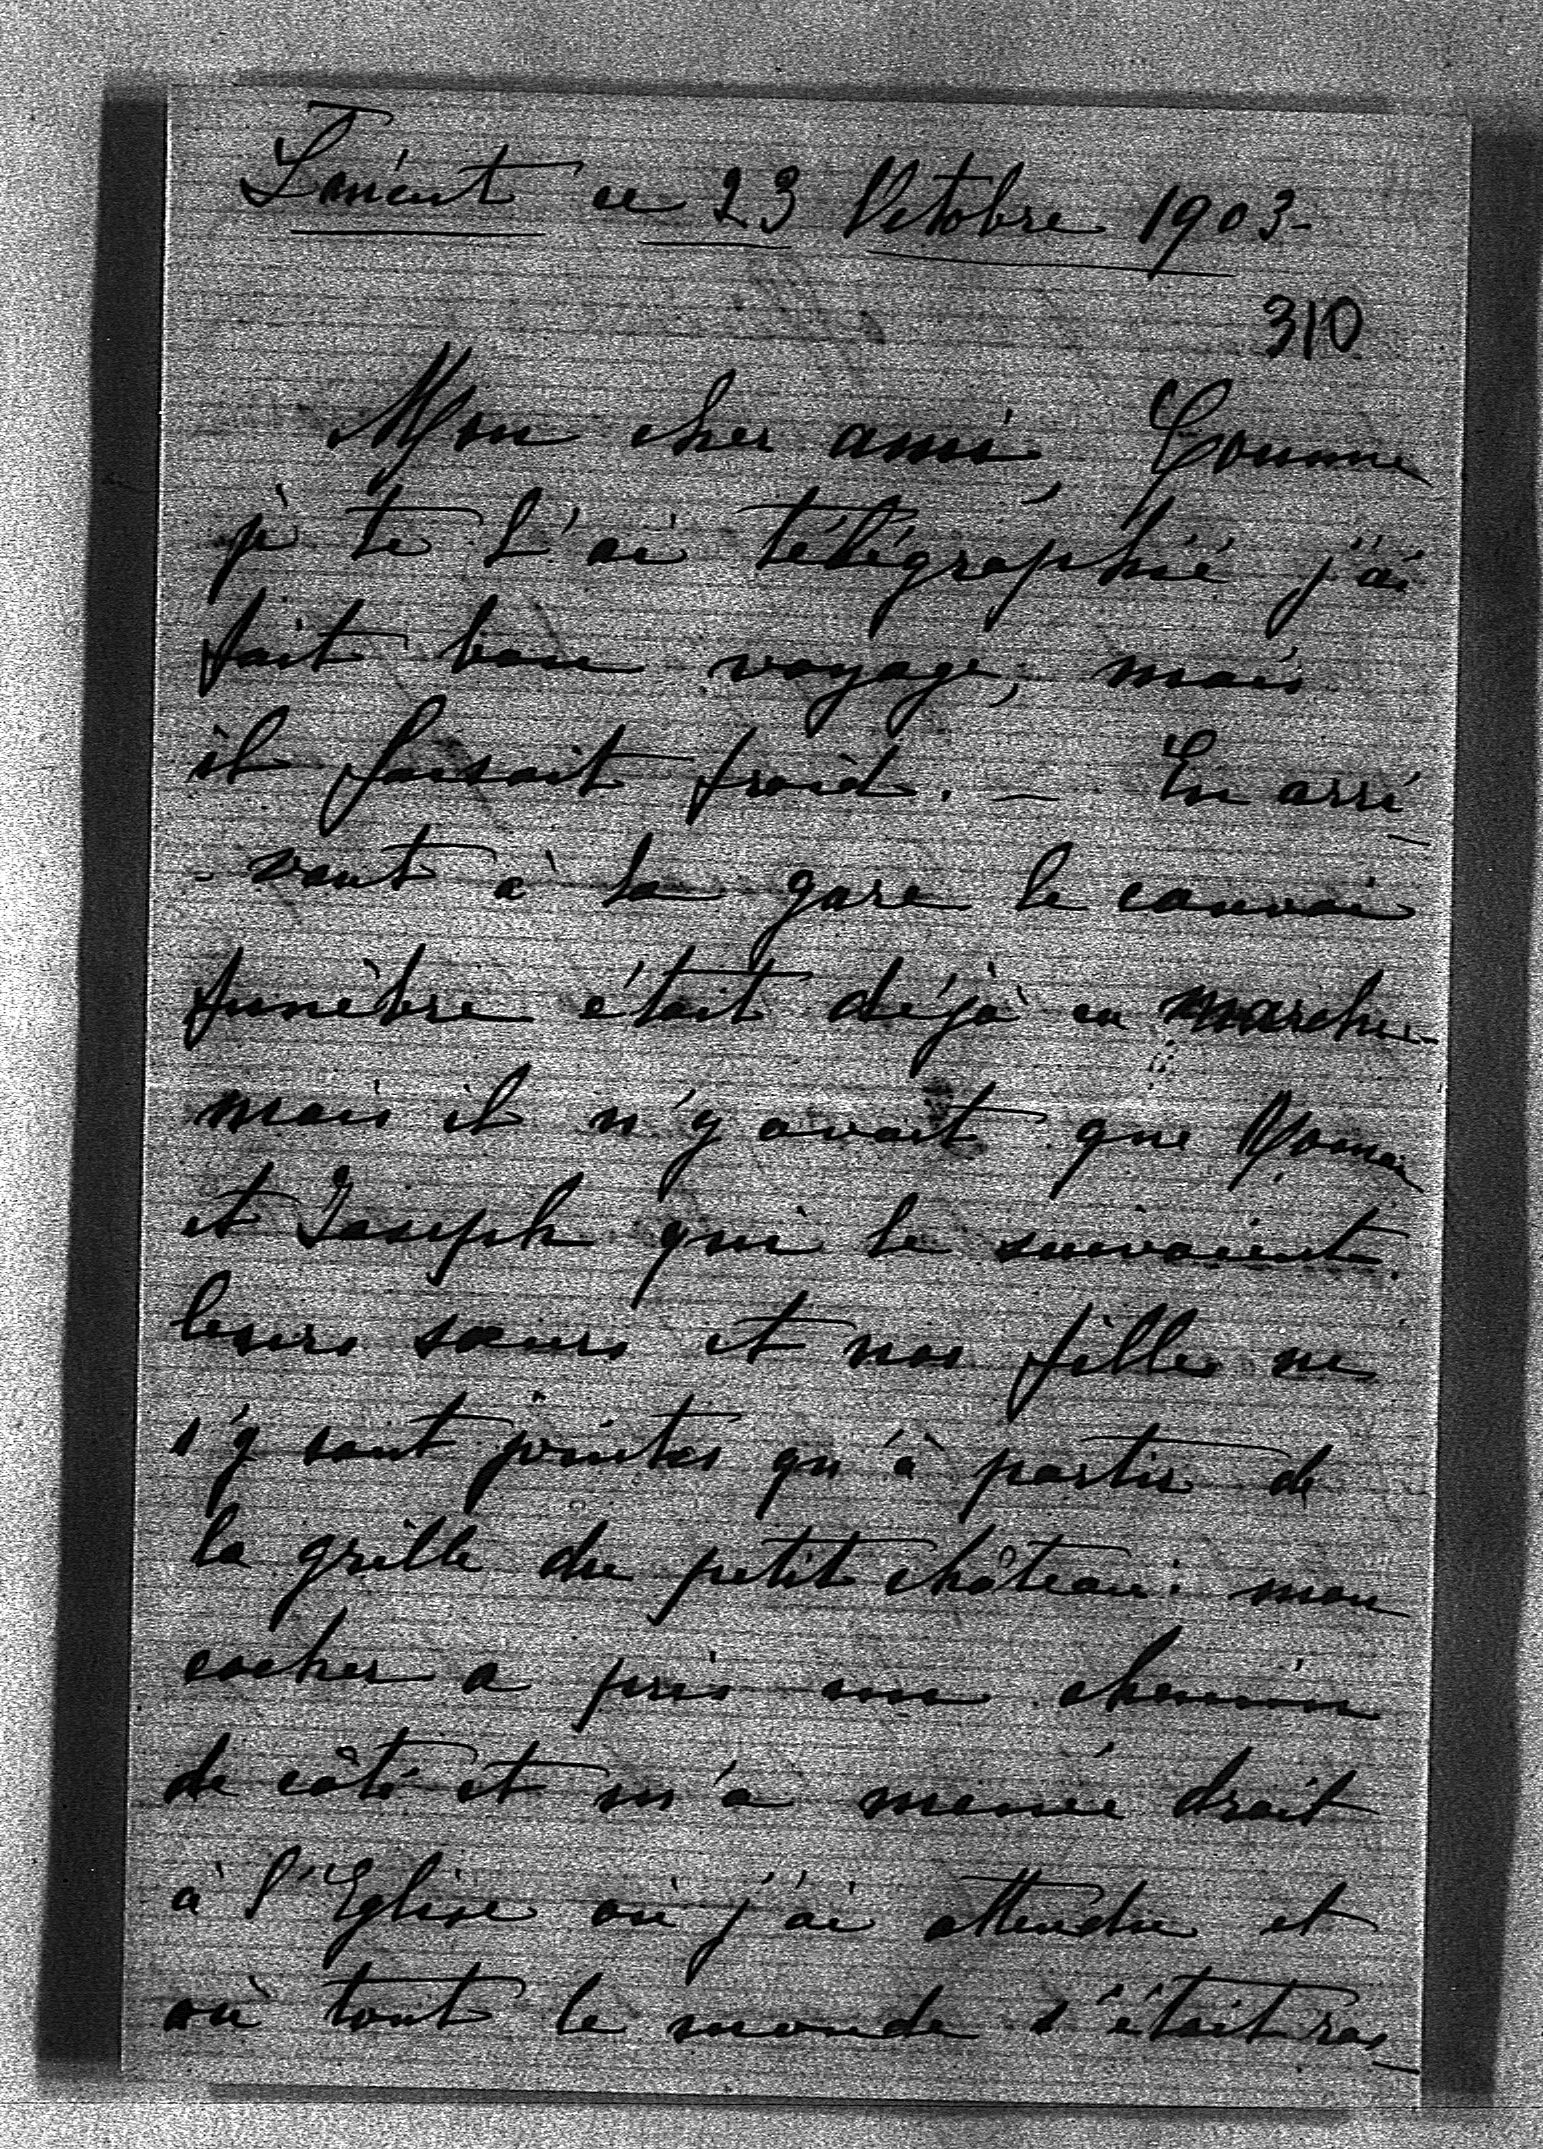 ce 23 Octobre 1903-
310
Mon cher ami, Comme
je te l'ai télégraphié j'ai
fait bon voyage, mais
il faisait froid. — En arri-
-vant à la gare le convoi
funèbre était déjà en marche
mais il n'y avait que
et Joseph qui le suivaient.
leurs sœurs et nos filles ne
s'y sont jointes qu'à partir de
la grille du petit château: mon
cocher a pris un chemin
de côté et m'a menée droit
à l'Eglise où j'ai attendu et
où tout le monde s'était ras-